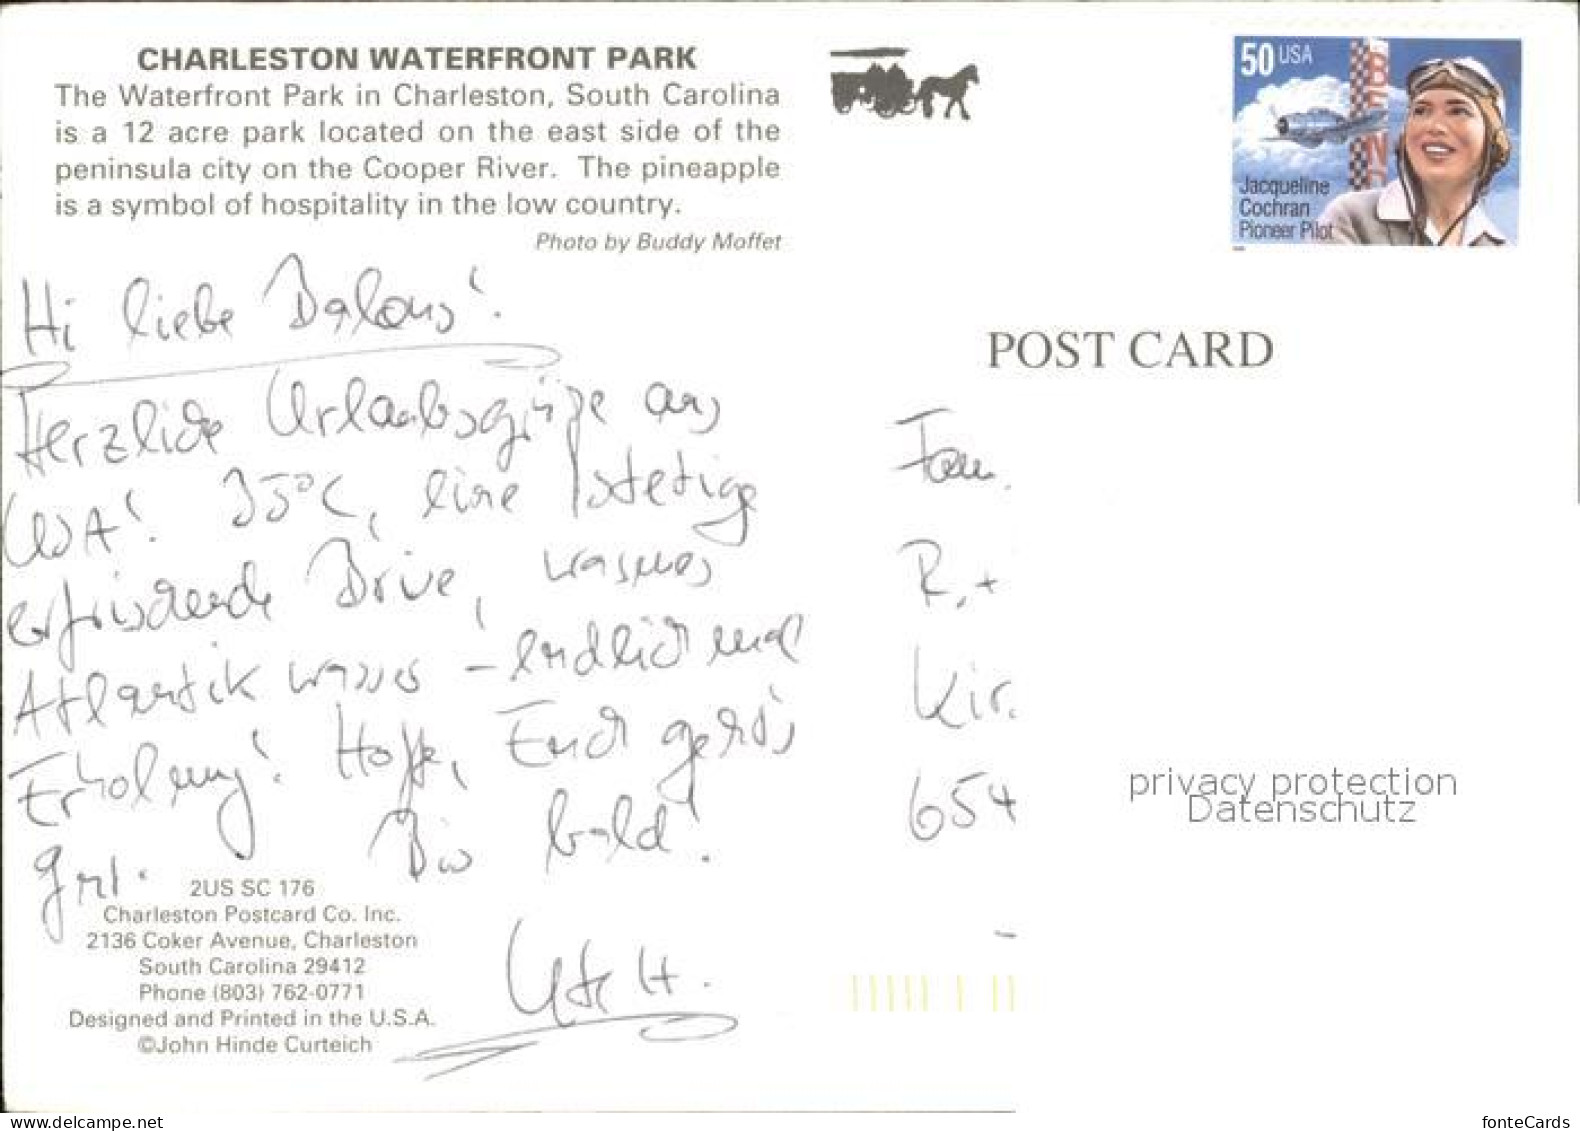 CHARLESTON WATERFRONT PARK
The Waterfront Park in Charleston, South Carolina
is a 12 acre park located on the east side of the
peninsula city on the Cooper River. The pineapple
is a symbol of hospitality in the low country.
Photo by Buddy Moffet
Hi liebe
Herzliche Urlaubsgrüße aus
USA! 35°C, eine stetige
erfrischende Brise, warmes
Atlantikwasser – endlich mal
Erholung! Hoffe, Euch geht's
gut. Bis bald!
Ute H.
2US SC 176
Charleston Postcard Co. Inc.
2136 Coker Avenue, Charleston
South Carolina 29412
Phone (803) 762-0771
Designed and Printed in the U.S.A.
©John Hinde Curteich
50 USA
BEND
Jacqueline
Cochran
Pioneer Pilot
POST CARD
Fam.
R. +
Kir
654
privacy protection
Datenschutz
www.delcampe.net
fonteCards